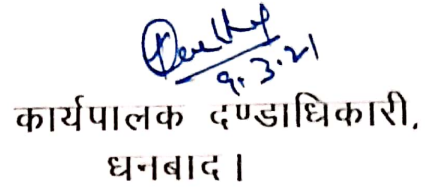 9.3.21
कार्यपालक दण्डाधिकारी,
धनबाद।